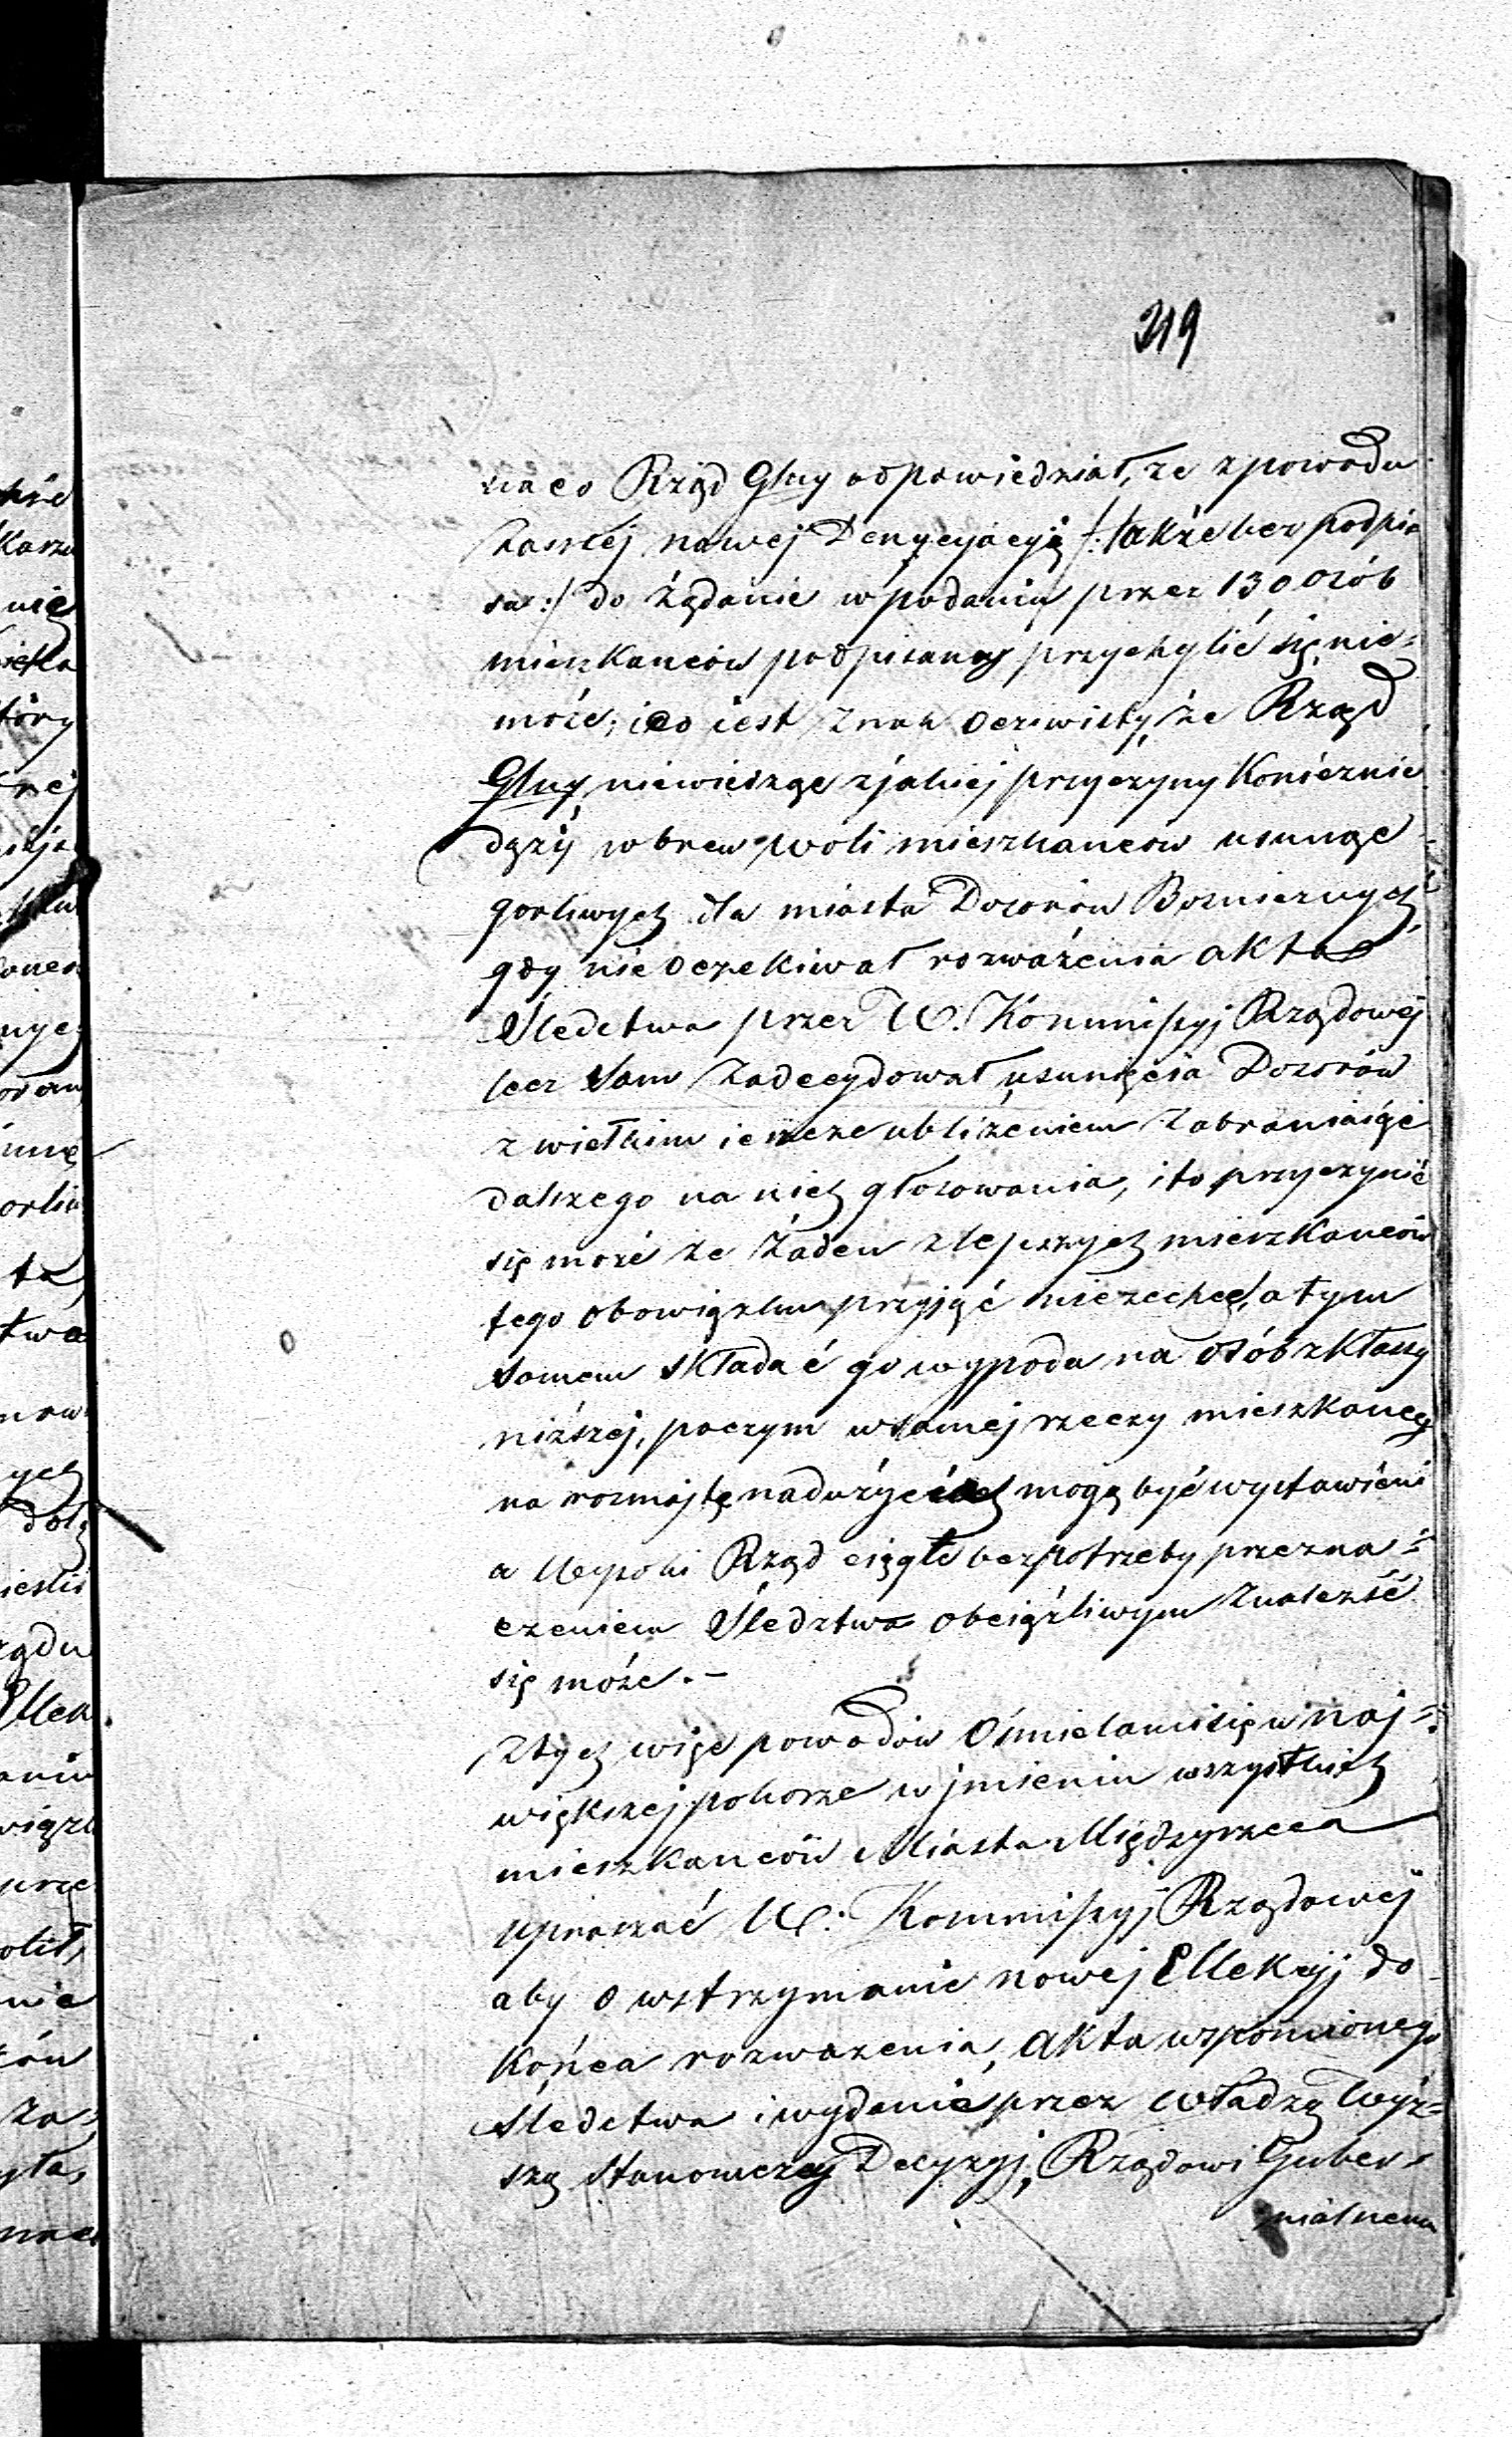 219
na co Rząd Glny odpowiedział, że z powodu
zaszłej nowej Denuncyacyi /: także bez podpi
su :/ do żądanie w podaniu przez 130 osób
mieszkańców podpisany przychylić się nie-
może; i co iest znak oczewisty, że Rząd
Glny niewiedząc z jakiej przyczyny Koniecznie
dąży wbrew woli mieszkańcow usunąć
gorliwych dla miasta Dozorów Boźnicznych
gdy nie oczekiwał rozważenia akta
Śledctwa przez W. Kommissyj Rządowej
lecz sam zadecydował usunięcia Dozorów
z wielkim ieszcze ubliżeniem zabraniaiąc
dalszego na nich głosowania, i to przyczynić
się może że żaden z lepszych mieszkańców
tego obowiązku przyjąć niezechce, a tym
samem składać go wypada na osób z Klassy
niższej, poczym w samej rzeczy mieszkańcy
na rozmajtę nadużyciach mogą być wystawieni
a Wysoki Rząd ciągle bez potrzeby przezna-
czeniem Śledztwa obciążliwym znaleźść
się może. –
Ztych więc powodów Ośmielamisię w naj-
większej pokorze w jmieniu wszystkich
mieszkańców Miasta Międzyrzeca
upraszać W. Kommissyj Rządowej
aby o wstrzymanie nowej Ellekcyj do
Końca rozważenia, akta wspomionego
Sledctwa i wydanie przez Władzę Wyż-
szą stanowczey Decyzyj, Rządowi Guber-
nialnemu